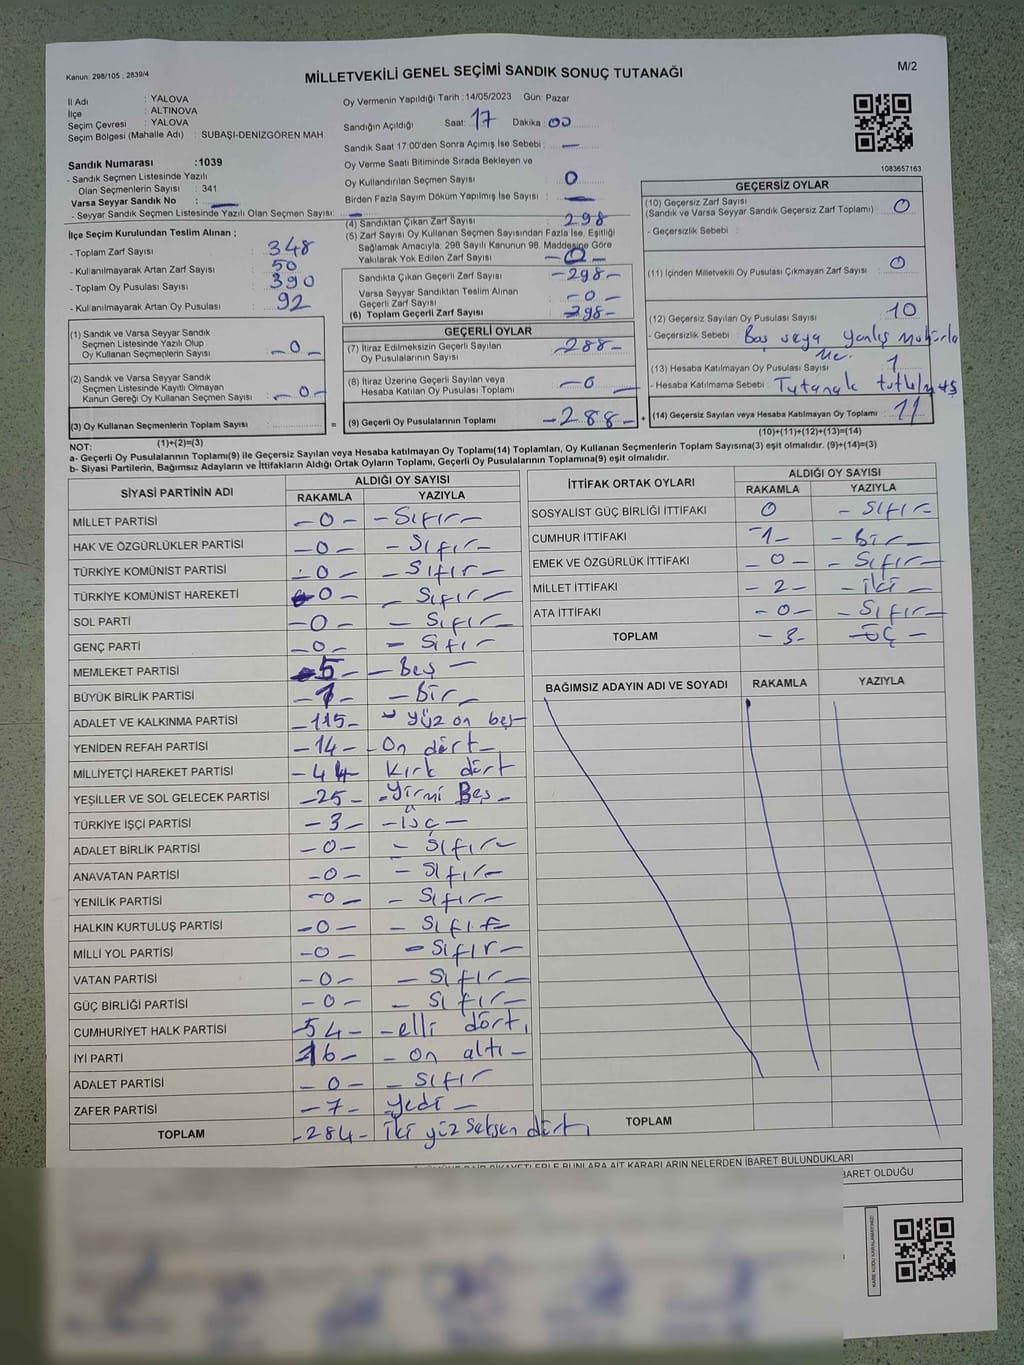 Kanun: 298/105 , 2839/4
MİLLETVEKİLİ GENEL SEÇİMİ SANDIK SONUÇ TUTANAĞI
M/2
İl Adı : YALOVA
İlçe : ALTINOVA
Seçim Çevresi : YALOVA
Seçim Bölgesi (Mahalle Adı) : SUBAŞI-DENİZGÖREN MAH
Sandık Numarası :1039
- Sandık Seçmen Listesinde Yazılı
Olan Seçmenlerin Sayısı : 341
Varsa Seyyar Sandık No :
- Seyyar Sandık Seçmen Listesinde Yazılı Olan Seçmen Sayısı: —
Oy Vermenin Yapıldığı Tarih :14/05/2023 Gün: Pazar
Sandığın Açıldığı Saat: 17 Dakika: 00
Sandık Saat 17:00'den Sonra Açımış İse Sebebi : —
Oy Verme Saati Bitiminde Sırada Bekleyen ve
Oy Kullandırılan Seçmen Sayısı 0
Birden Fazla Sayım Döküm Yapılmış İse Sayısı : —
1083657163
İlçe Seçim Kurulundan Teslim Alınan ;
- Toplam Zarf Sayısı : 348
- Kullanılmayarak Artan Zarf Sayısı : 50
- Toplam Oy Pusulası Sayısı : 390
- Kullanılmayarak Artan Oy Pusulası : 92
(1) Sandık ve Varsa Seyyar Sandık
Seçmen Listesinde Yazılı Olup
Oy Kullanan Seçmenlerin Sayısı : -0-
(2) Sandık ve Varsa Seyyar Sandık
Seçmen Listesinde Kayıtlı Olmayan
Kanun Gereği Oy Kullanan Seçmen Sayısı : -0-
(3) Oy Kullanan Seçmenlerin Toplam Sayısı :
(1)+(2)=(3)
(4) Sandıktan Çıkan Zarf Sayısı : 298
(5) Zarf Sayısı Oy Kullanan Seçmen Sayısından Fazla İse, Eşitliği
Sağlamak Amacıyla, 298 Sayılı Kanunun 98. Maddesine Göre
Yakılarak Yok Edilen Zarf Sayısı -0-
Sandıkta Çıkan Geçerli Zarf Sayısı -298-
Varsa Seyyar Sandıktan Teslim Alınan
Geçerli Zarf Sayısı -0-
(6) Toplam Geçerli Zarf Sayısı : -298-
GEÇERLİ OYLAR
(7) İtiraz Edilmeksizin Geçerli Sayılan
Oy Pusulalarının Sayısı : -288-
(8) İtiraz Üzerine Geçerli Sayılan veya
Hesaba Katılan Oy Pusulası Toplamı : -0
(9) Geçerli Oy Pusulalarının Toplamı -288-
GEÇERSİZ OYLAR
(10) Geçersiz Zarf Sayısı
(Sandık ve Varsa Seyyar Sandık Geçersiz Zarf Toplamı) : 0
- Geçersizlik Sebebi :
(11) İçinden Milletvekili Oy Pusulası Çıkmayan Zarf Sayısı : 0
(12) Geçersiz Sayılan Oy Pusulası Sayısı : 10
- Geçersizlik Sebebi : Boş veya yanlış
(13) Hesaba Katılmayan Oy Pusulası Sayısı : 1
- Hesaba Katılmama Sebebi : Tutanak
(14) Geçersiz Sayılan veya Hesaba Katılmayan Oy Toplamı : 11
(10)+(11)+(12)+(13)=(14)
NOT:
a- Geçerli Oy Pusulalarının Toplamı(9) ile Geçersiz Sayılan veya Hesaba katılmayan Oy Toplamı(14) Toplamları, Oy Kullanan Seçmenlerin Toplam Sayısına(3) eşit olmalıdır. (9)+(14)=(3)
b- Siyasi Partilerin, Bağımsız Adayların ve İttifakların Aldığı Ortak Oyların Toplamı, Geçerli Oy Pusulalarının Toplamına(9) eşit olmalıdır.
SİYASİ PARTİNİN ADI ALDIĞI OY SAYISI
RAKAMLA YAZIYLA
MİLLET PARTİSİ -0- -Sıfır-
HAK VE ÖZGÜRLÜKLER PARTİSİ -0- -Sıfır-
TÜRKİYE KOMÜNİST PARTİSİ -0- -Sıfır-
TÜRKİYE KOMÜNİST HAREKETİ 0- -Sıfır-
SOL PARTİ -0- -Sıfır-
GENÇ PARTİ -0- -Sıfır-
MEMLEKET PARTİSİ -5- -Beş-
BÜYÜK BİRLİK PARTİSİ -1- -Bir-
ADALET VE KALKINMA PARTİSİ -115- -yüz on beş-
YENİDEN REFAH PARTİSİ -14- -On dört-
MİLLİYETÇİ HAREKET PARTİSİ -44- Kırk dört
YEŞİLLER VE SOL GELECEK PARTİSİ -25- -Yirmi Beş-
TÜRKİYE İŞÇİ PARTİSİ -3- -üç-
ADALET BİRLİK PARTİSİ -0- -Sıfır-
ANAVATAN PARTİSİ -0- -Sıfır-
YENİLİK PARTİSİ -0- -Sıfır-
HALKIN KURTULUŞ PARTİSİ -0- -Sıfır-
MİLLİ YOL PARTİSİ -0- -Sıfır-
VATAN PARTİSİ -0- -Sıfır-
GÜÇ BİRLİĞİ PARTİSİ -0- -Sıfır-
CUMHURİYET HALK PARTİSİ -54- -elli dört-
İYİ PARTİ 16- -on altı-
ADALET PARTİSİ -0- -Sıfır
ZAFER PARTİSİ -7- yedi-
TOPLAM -284- iki yüz seksen dört
İTTİFAK ORTAK OYLARI ALDIĞI OY SAYISI
RAKAMLA YAZIYLA
SOSYALIST GÜÇ BİRLİĞİ İTTİFAKI 0 -Sıfır-
CUMHUR İTTİFAKI -1- -Bir-
EMEK VE ÖZGÜRLÜK İTTİFAKI -0- -Sıfır-
MİLLET İTTİFAKI -2- -iki-
ATA İTTİFAKI -0- -Sıfır-
TOPLAM -3- -Üç-
BAĞIMSIZ ADAYIN ADI VE SOYADI RAKAMLA YAZIYLA
TOPLAM
KARARLARIN NELERDEN İBARET BULUNDUKLARI
İBARET OLDUĞU